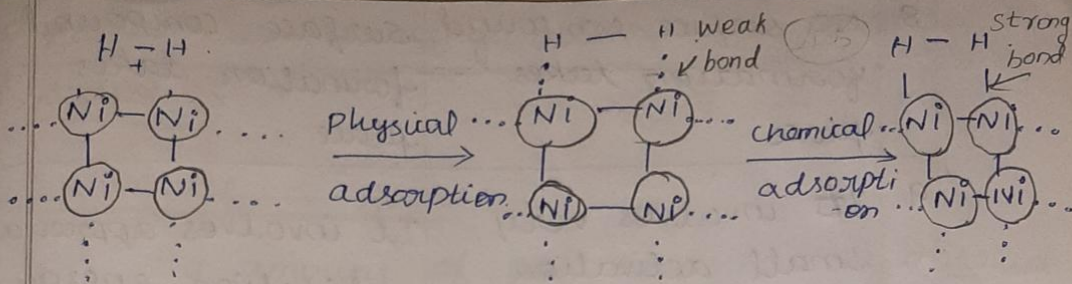 H - H
+
Ni - Ni
Ni - Ni
Physical
adsorption
H — H weak
bond
Ni - Ni
Ni - Ni
chemical
adsorpti
-on
H - H strong
bond
Ni - Ni
Ni - Ni